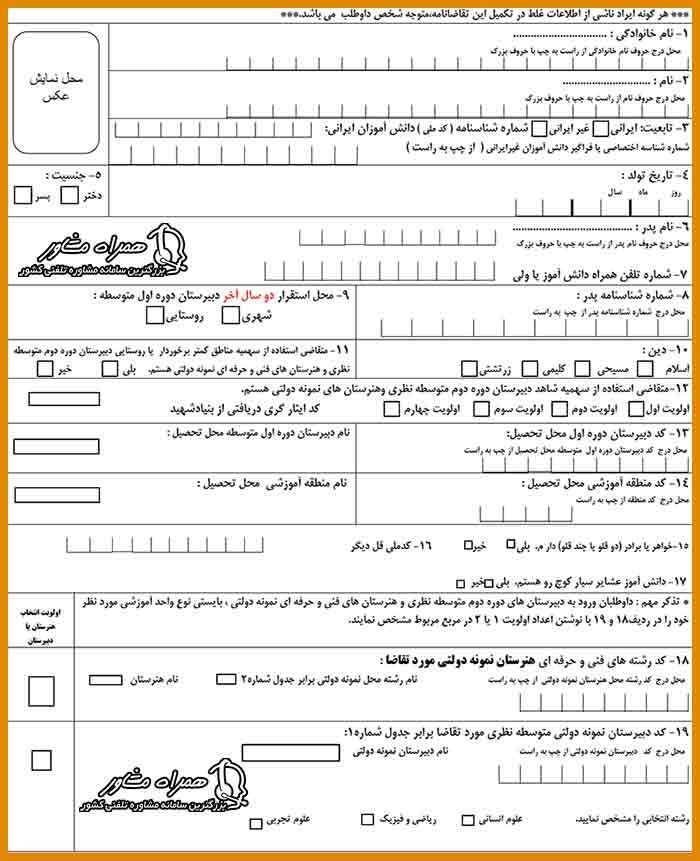 *** هر گونه ایراد ناشی از اطلاعات غلط در تکمیل این تقاضانامه،متوجه شخص داوطلب می باشد.***
۱- نام خانوادگی : ................................
محل درج حروف نام خانوادگی از راست به چپ با حروف بزرگ
محل نمایش
عکس
۲- نام : ................................
محل درج حروف نام از راست به چپ با حروف بزرگ
۳- تابعیت: ایرانی غیر ایرانی شماره شناسنامه ( کد ملی ) دانش آموزان ایرانی:
شماره شناسه اختصاصی یا فراگیر دانش آموزان غیرایرانی ( از چپ به راست )
۴- تاریخ تولد :
روز ماه سال
۵- جنسیت :
دختر پسر
۶- نام پدر : ................................
محل درج حروف نام پدر از راست به چپ با حروف بزرگ
همراه مشاور
بزرگترین سامانه مشاوره تلفنی کشور
۷- شماره تلفن همراه دانش آموز یا ولی
۸- شماره شناسنامه پدر :
محل درج شماره شناسنامه پدر از چپ به راست
۹- محل استقرار دو سال آخر دبیرستان دوره اول متوسطه :
شهری روستایی
۱۰- دین :
اسلام مسیحی کلیمی زرتشتی
۱۱- متقاضی استفاده از سهمیه مناطق کمتر برخوردار یا روستایی دبیرستان دوره دوم متوسطه
نظری و هنرستان های فنی و حرفه ای نمونه دولتی هستم. بلی خیر
۱۲-متقاضی استفاده از سهمیه شاهد دبیرستان دوره دوم متوسطه نظری وهنرستان های نمونه دولتی هستم.
اولویت اول اولویت دوم اولویت سوم اولویت چهارم کد ایثار گری دریافتی از بنیادشهید
۱۳- کد دبیرستان دوره اول محل تحصیل:
محل درج کد دبیرستان دوره اول متوسطه محل تحصیل از چپ به راست
نام دبیرستان دوره اول متوسطه محل تحصیل :
۱۴- کد منطقه آموزشی محل تحصیل :
محل درج کد منطقه از چپ به راست
نام منطقه آموزشی محل تحصیل :
۱۵-خواهر یا برادر (دو قلو یا چند قلو) دار م. بلی خیر ۱۶- کدملی قل دیگر
۱۷- دانش آموز عشایر سیار کوچ رو هستم. بلی خیر
* تذکر مهم : داوطلبان ورود به دبیرستان های دوره دوم متوسطه نظری و هنرستان های فنی و حرفه ای نمونه دولتی ، بایستی نوع واحد آموزشی مورد نظر
خود را در ردیف۱۸ و ۱۹ با نوشتن اعداد اولویت ۱ یا ۲ در مربع مربوط مشخص نمایند.
اولویت انتخاب
هنرستان یا
دبیرستان
۱۸- کد رشته های فنی و حرفه ای هنرستان نمونه دولتی مورد تقاضا :
محل درج کد رشته محل هنرستان نمونه دولتی از چپ به راست
نام رشته محل نمونه دولتی برابر جدول شماره۲ نام هنرستان
۱۹- کد دبیرستان نمونه دولتی متوسطه نظری مورد تقاضا برابر جدول شماره۱:
محل درج کد دبیرستان نمونه دولتی از چپ به راست
نام دبیرستان نمونه دولتی
همراه مشاور
بزرگترین سامانه مشاوره تلفنی کشور
رشته انتخابی را مشخص نمایید. علوم انسانی ریاضی و فیزیک علوم تجربی